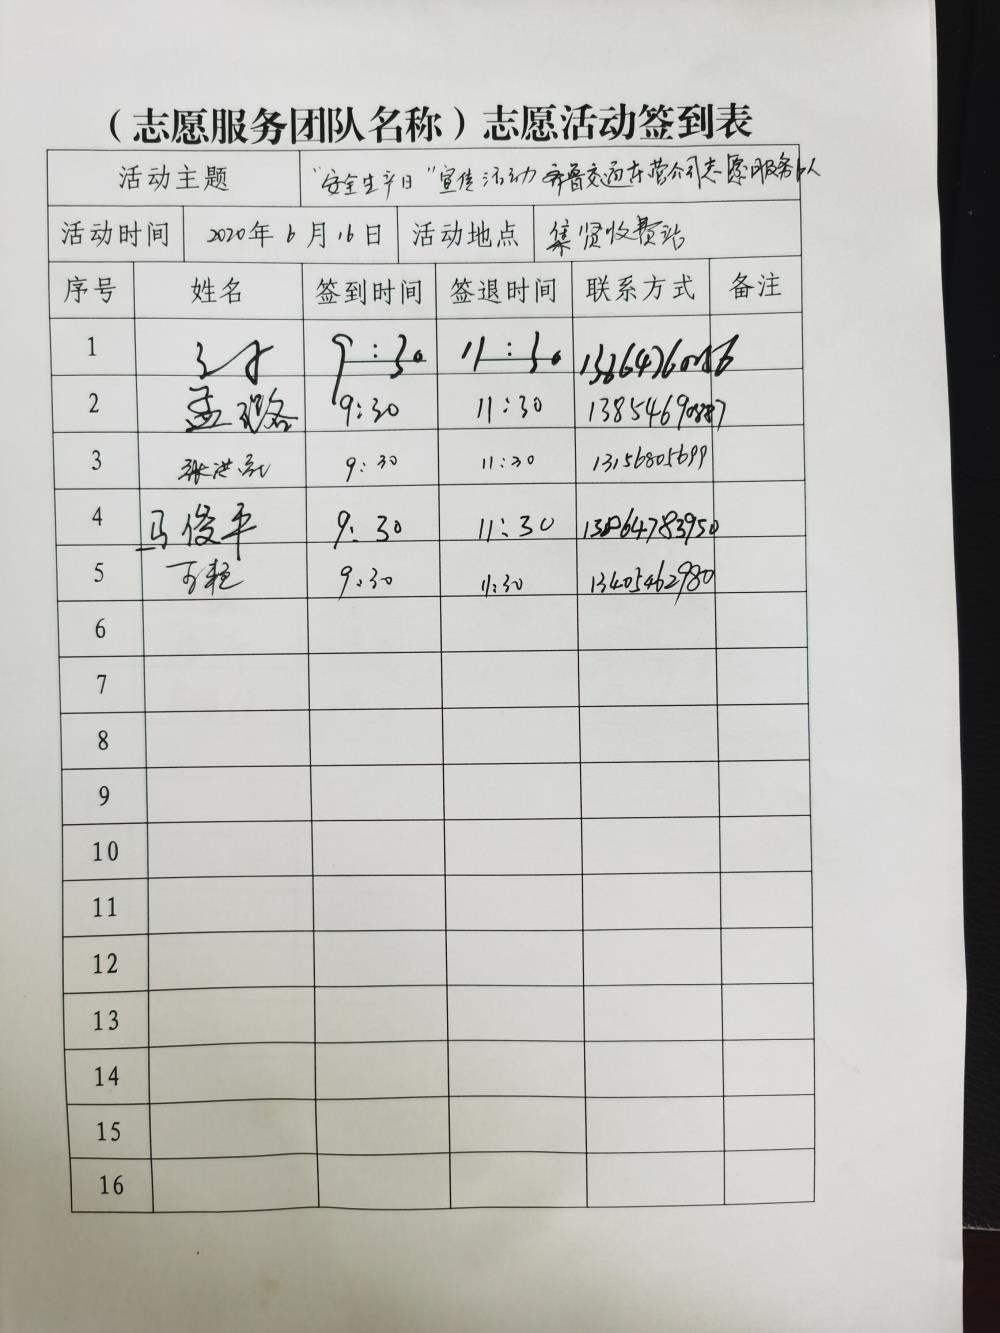 （志愿服务团队名称）志愿活动签到表
活动主题 “安全生产日”宣传活动 齐鲁交通东营公司志愿服务队
活动时间 2020年6月16日 活动地点 集贤收费站
序号 姓名 签到时间 签退时间 联系方式 备注
1 9:30 11:30
2 孟璐 9:30 11:30
3 张洪 9:30 11:30 13156805699
4 马俊平 9:30 11:30 13864783950
5 9:30 11:30 13405462980
6
7
8
9
10
11
12
13
14
15
16